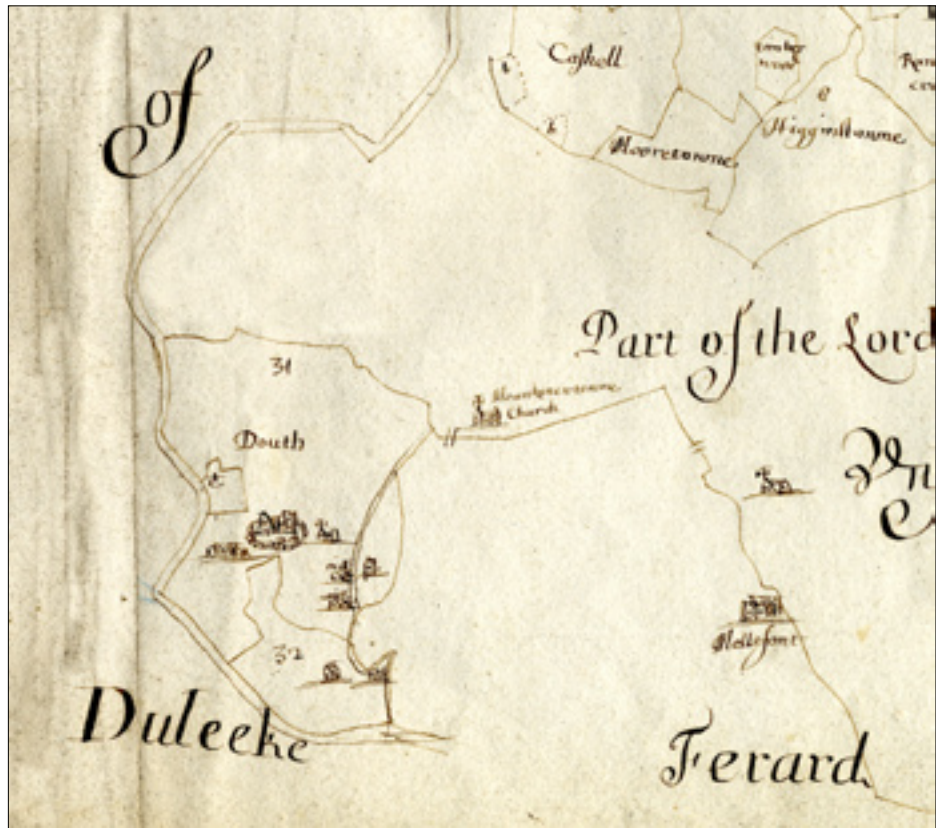 Of
Castell
e
Mooretowne
Higginstowne
Part of the Lord
31
Church
Douth
32
Mellefont
Duleeke
Ferard